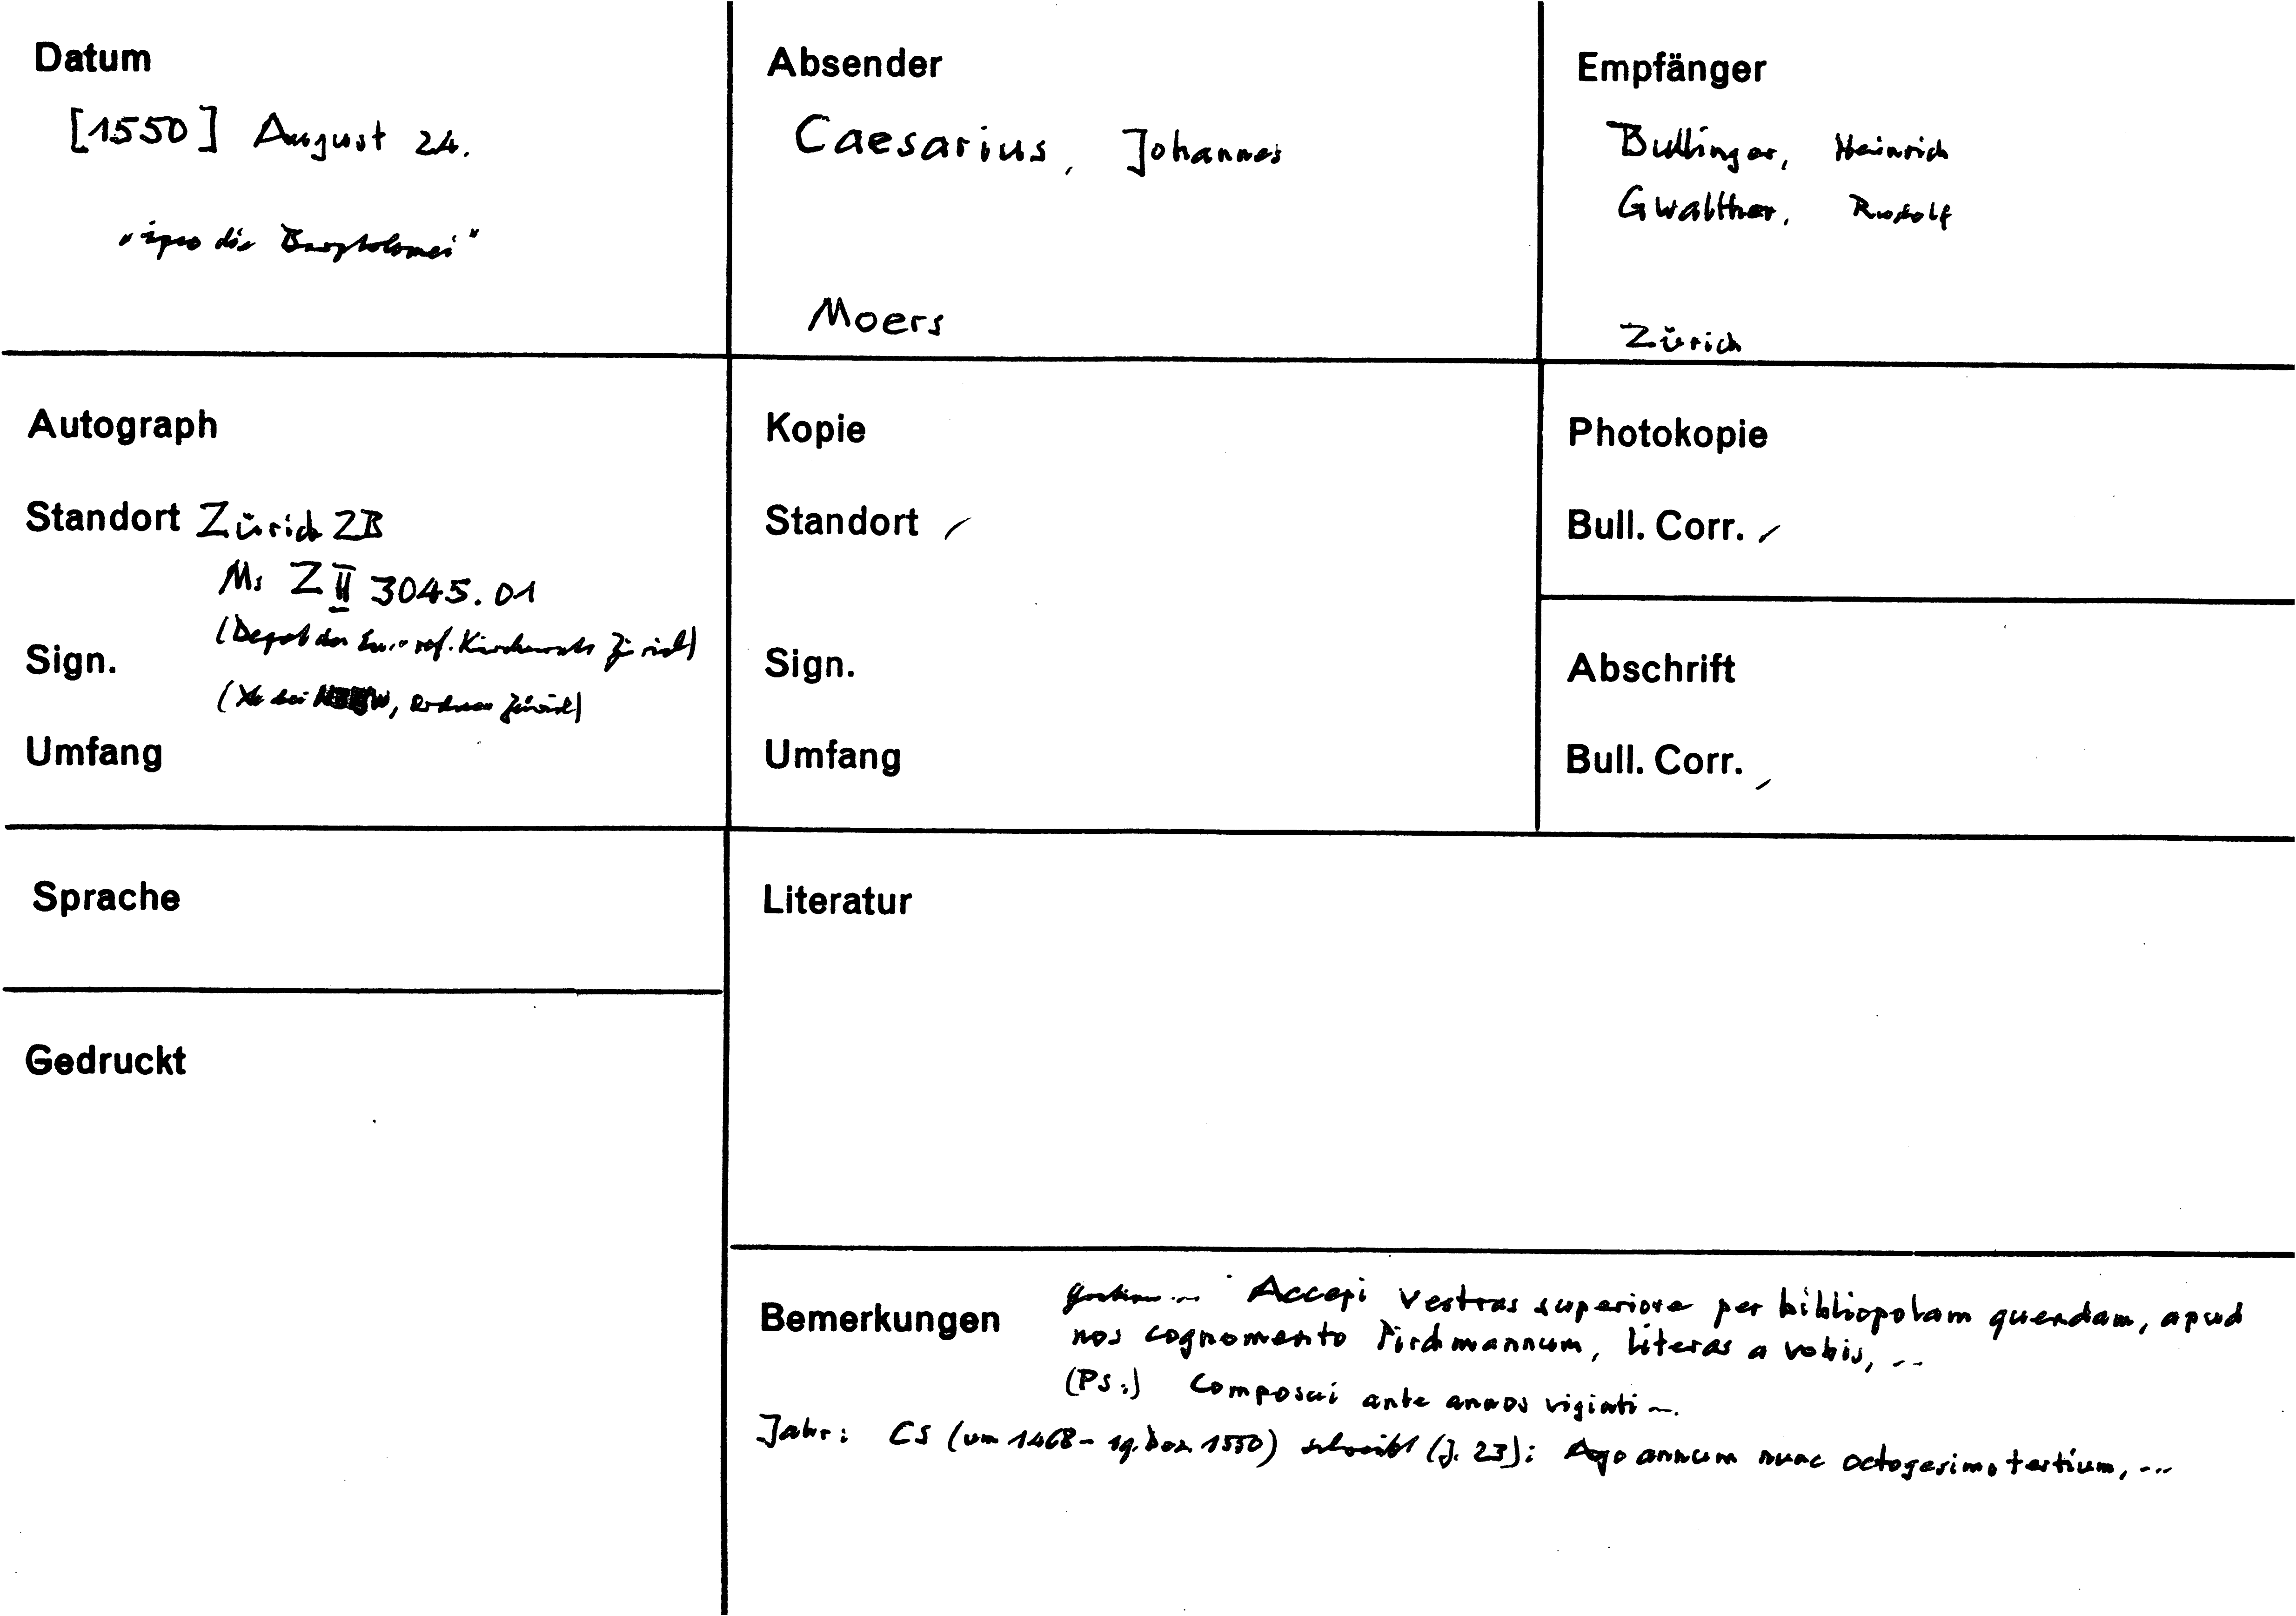 Datum
[1550] August 24.
"ipso die Bartholomei"
Absender
Caesarius, Johannes
Moers
Empfänger
Bullinger, Heinrich
Gwalther, Rudolf
Zürich
Autograph
Standort Zürich ZB
Ms Z II 3045.01
(Depot der Ev.-ref. Kirchenrats Zürich)
Sign.
Zürich)
Umfang
Kopie
Standort /
Sign.
Umfang
Photokopie
Bull. Corr. /
Abschrift
Bull. Corr. /
Sprache
Literatur
Gedruckt
Bemerkungen
... Accepi vestras superiore per bibliopolam quendam, apud
nos cognomento Pirckmannum, literas a vobis, ...
(PS:) Composui ante annos viginti ...
Jahr: CS (um 1468 - 19. Dez. 1550) schreibt (Z. 23): Ago annum nunc octogesimo tertium, ...